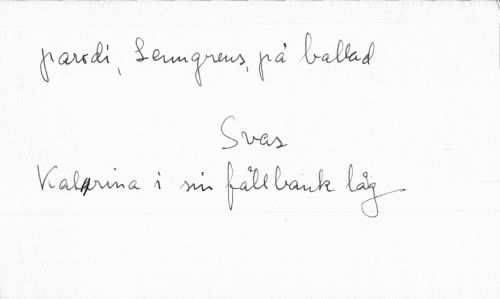 parodi, Lenngrens, på ballad
Svas
Katarina i sin fållbänk låg